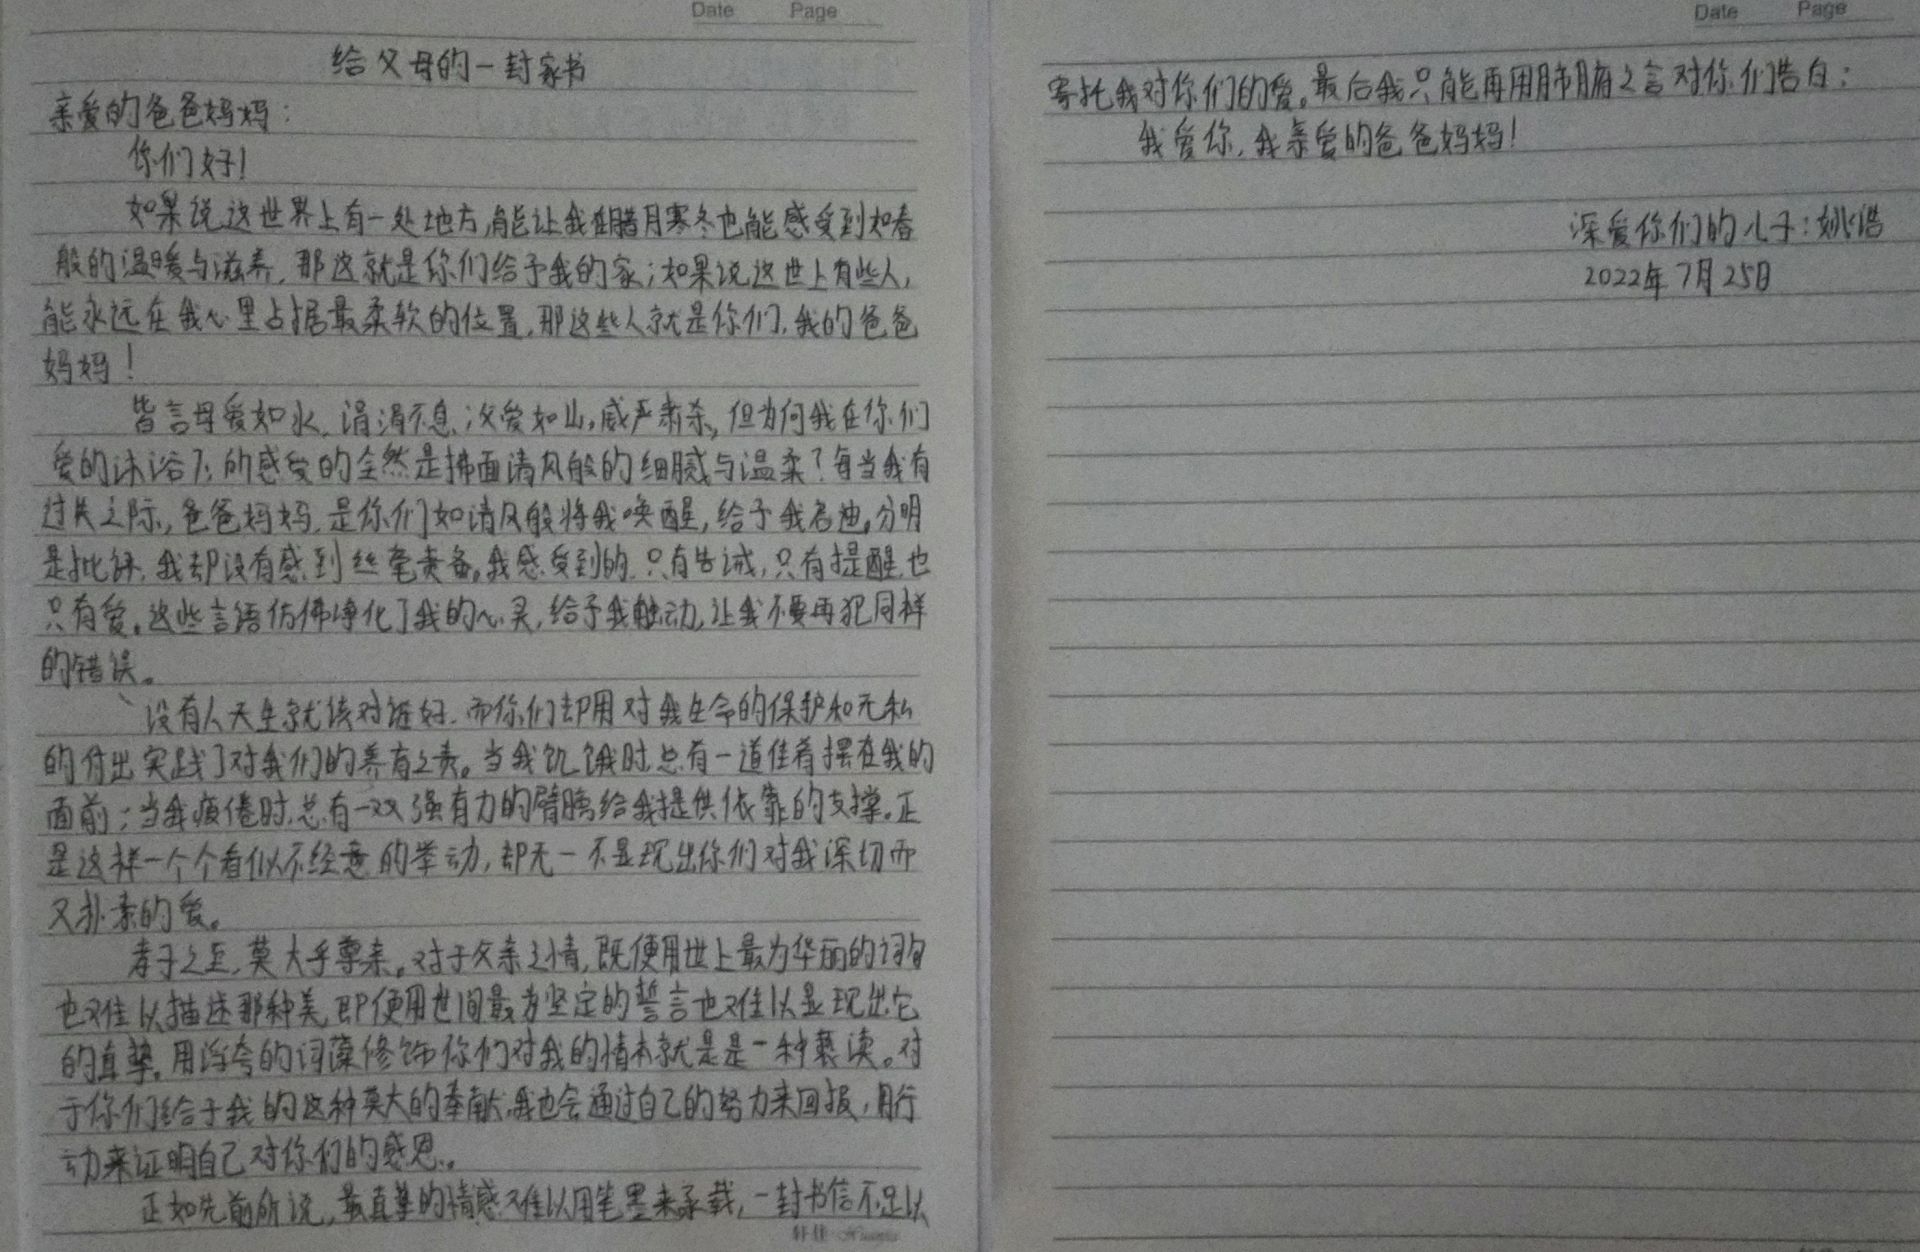 Date Page
给父母的一封家书
亲爱的爸爸妈妈：
你们好！
如果说这世界上有一处地方，能让我在腊月寒冬也能感受到如春
般的温暖与滋养，那这就是你们给予我的家；如果说这世上有些人，
能永远在我心里占据最柔软的位置，那这些人就是你们，我的爸爸
妈妈！
皆言母爱如水，涓涓不息；父爱如山，威严肃杀，但为何我在你们
爱的沐浴下，所感受的全然是拂面清风般的细腻与温柔？每当我有
过失之际，爸爸妈妈，是你们如清风般将我唤醒，给予我启迪。分明
是批评，我却没有感到丝毫责备。我感受到的，只有告诫，只有提醒，也
只有爱。这些言语仿佛净化了我的心灵，给予我触动，让我不要再犯同样
的错误。
没有人天生就该对谁好，而你们却用对我生命的保护和无私
的付出实践了对我们的养育之责。当我饥饿时，总有一道佳肴摆在我的
面前；当我疲倦时，总有一双强有力的臂膀给我提供依靠的支撑。正
是这样一个个看似不经意的举动，却无一不显现出你们对我深切而
又朴素的爱。
孝子之至，莫大乎尊亲。对于父亲之情，既使用世上最为华丽的词句
也难以描述那种美，即便用世间最为坚定的誓言也难以显现出它
的真挚。用浮夸的词藻修饰你们对我的情本就是是一种亵渎。对
于你们给于我的这种莫大的奉献，我也会通过自己的努力来回报，用行
动来证明自己对你们的感恩。
正如先前所说，最真挚的情感难以用笔墨来承载，一封书信不足以
Date Page
寄托我对你们的爱。最后我只能再用肺腑之言对你们告白：
我爱你，我亲爱的爸爸妈妈！
深爱你们的儿子：姚浩
2022年7月25日